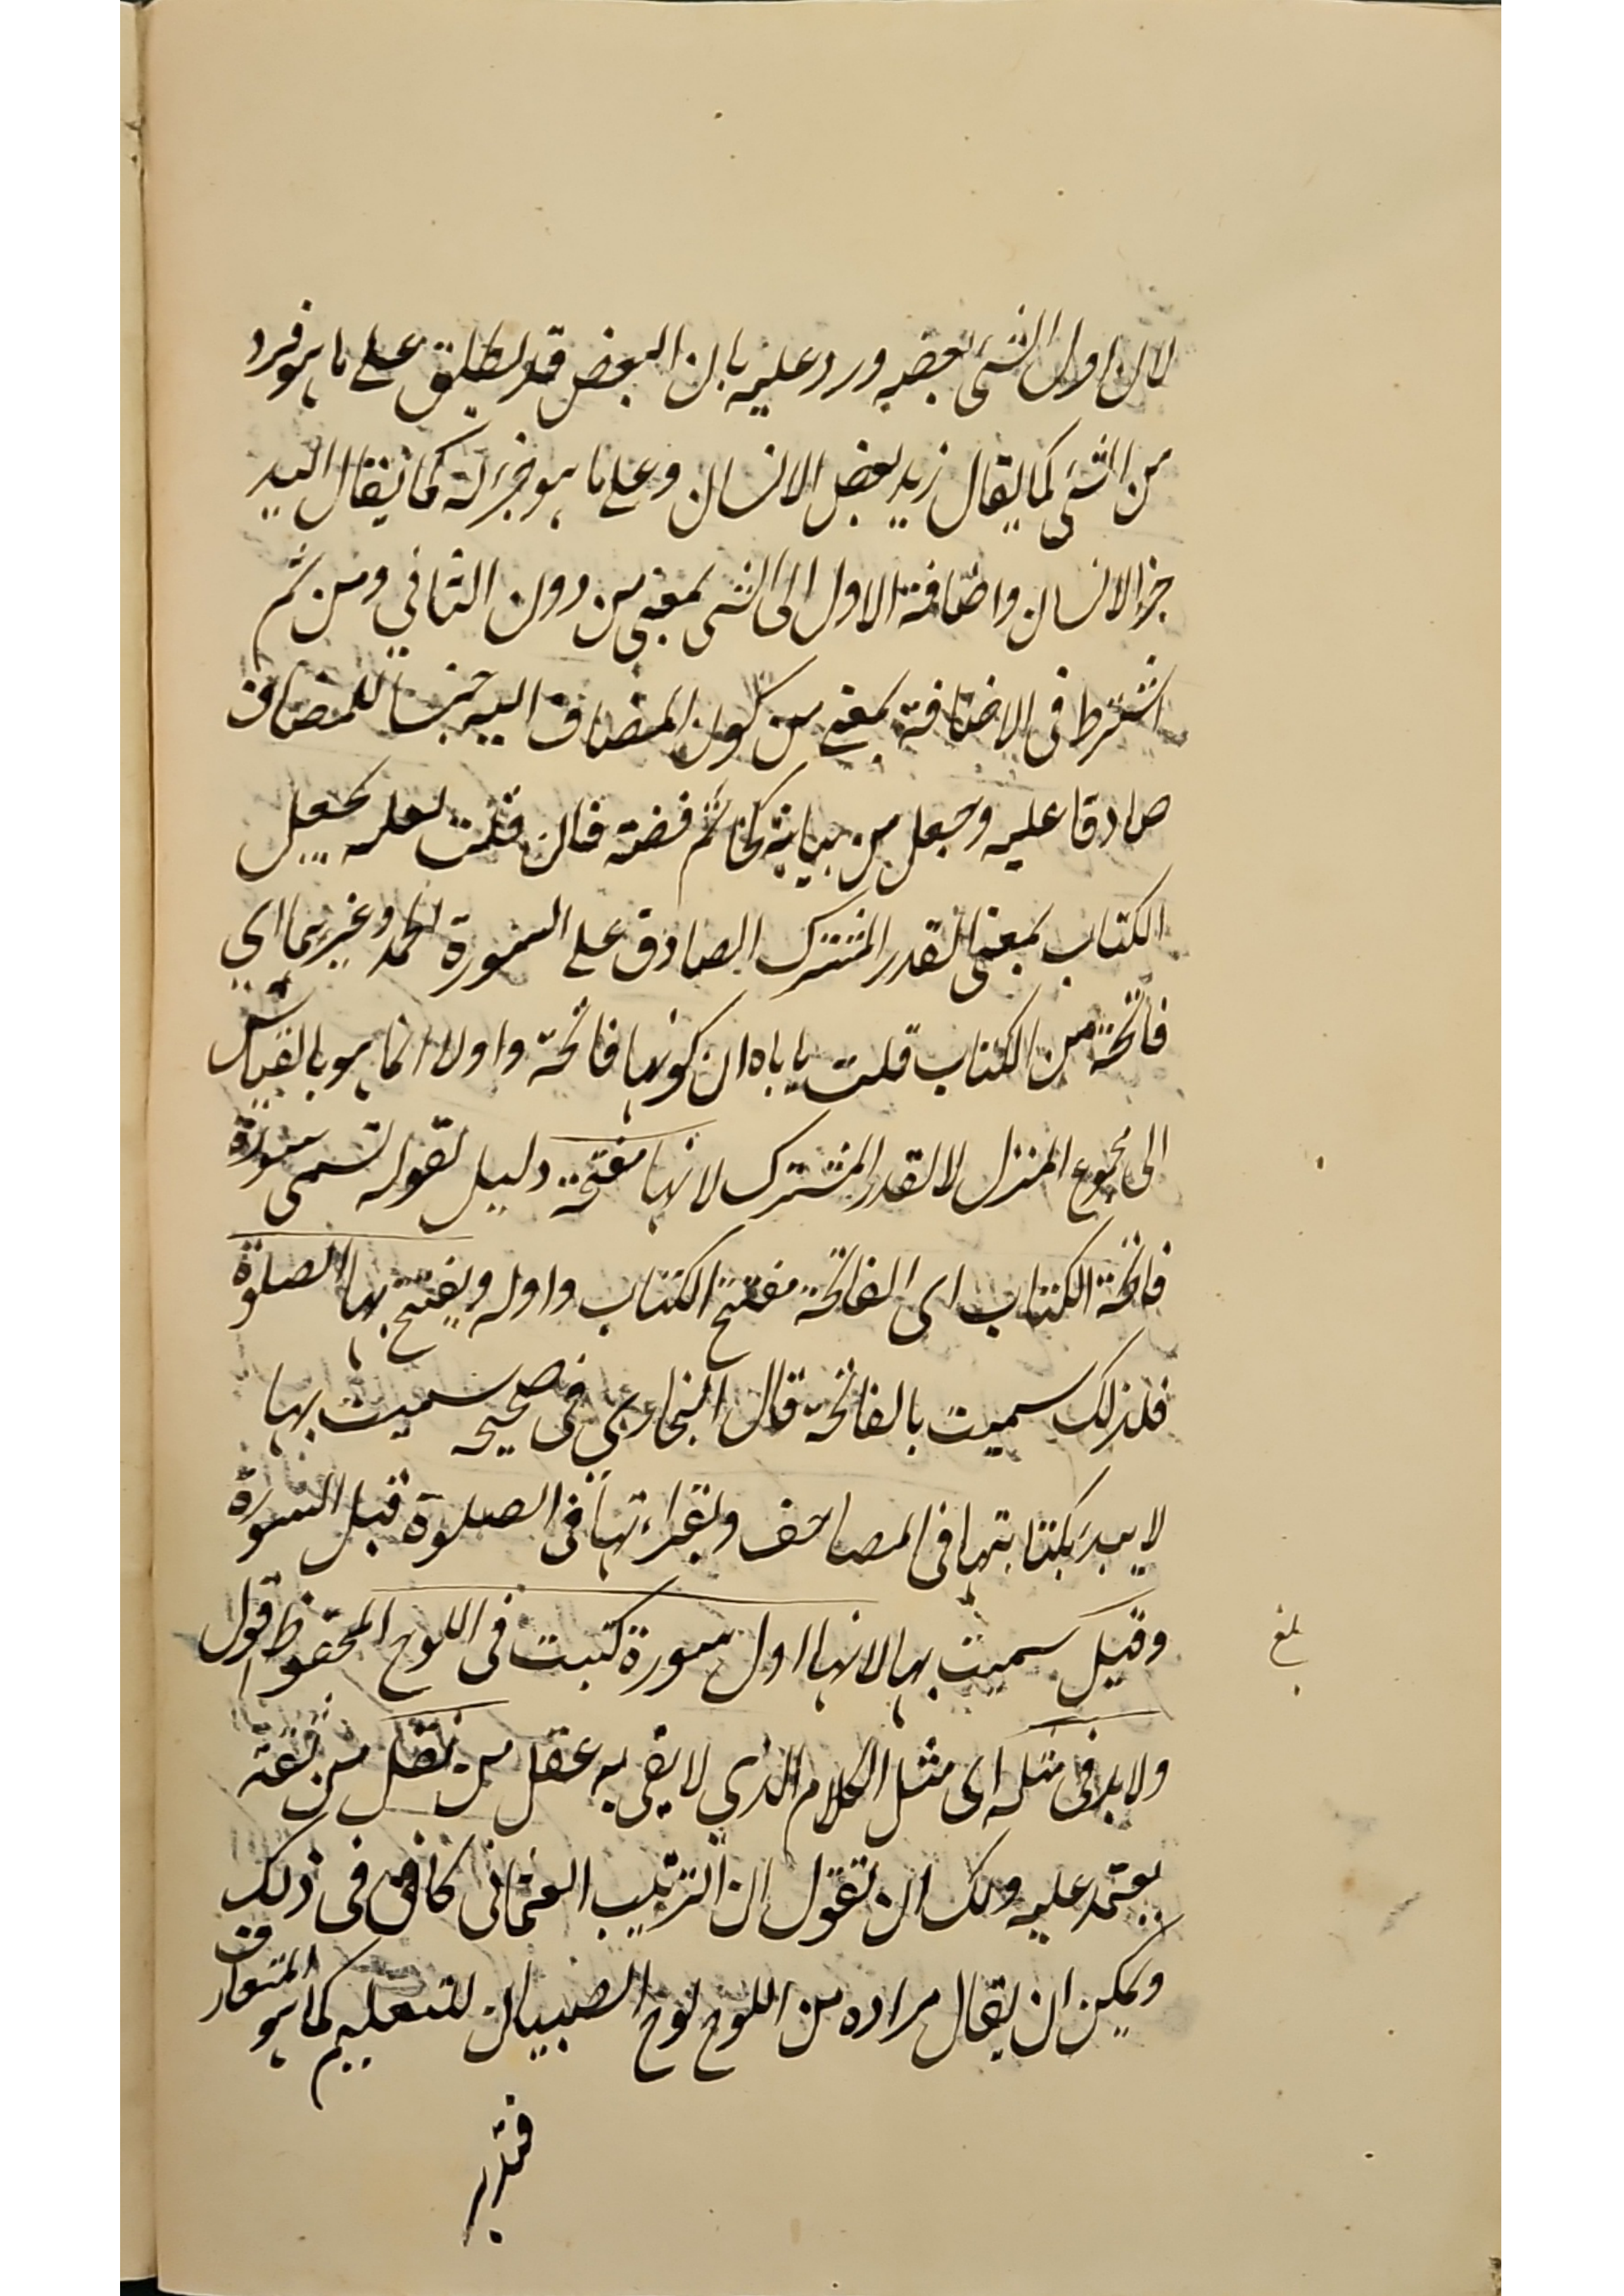 لان اول الشئ بعضه ورد عليه بان البعض قد يطلق على ما هو فرد
من الشئ كما يقال زيد بعض الانسان وعلى ما هو جزء له كما يقال اليد
جزء الانسان واضافة الاول الى الشئ بمعنى من دون الثاني ومن ثم
اشترط فى الاضافة بمعنى من كون المضاف اليه جنسا للمضاف
صادقا عليه وجعل من بيانية كخاتم فضة فان قلت لعله يجعل
الكتاب بمعنى القدر المشترك الصادق على السورة الحمد وغيرهما اي
فاتحة من الكتاب قلت ياباه ان كونها فاتحة واولا انما هو بالقياس
الى مجموع المنزل لا القدر المشترك لانها مفتحة دليل لقوله تسمى سورة
فاتحة الكتاب اى الفاتحة مفتتح الكتاب واوله ويفتتح بها الصلوة
فلذلك سميت بالفاتحة قال البخاري فى صحيحه سميت بها
لا يبدء بكتابتها فى المصاحف وبقراءتها فى الصلوة قبل السورة
وقيل سميت بها لانها اول سورة كتبت فى اللوح المحفوظ اقول
ولابد فى مثله اى مثل الكلام الذي لا يفى به عقل من نقل من ثقة
يعتمد عليه ولك ان تقول ان الترتيب العثمانى كاف فى ذلك
ويمكن ان يقال مراده من اللوح لوح الصبيان للتعليم كما هو المتعارف
فتدبر
بلغ